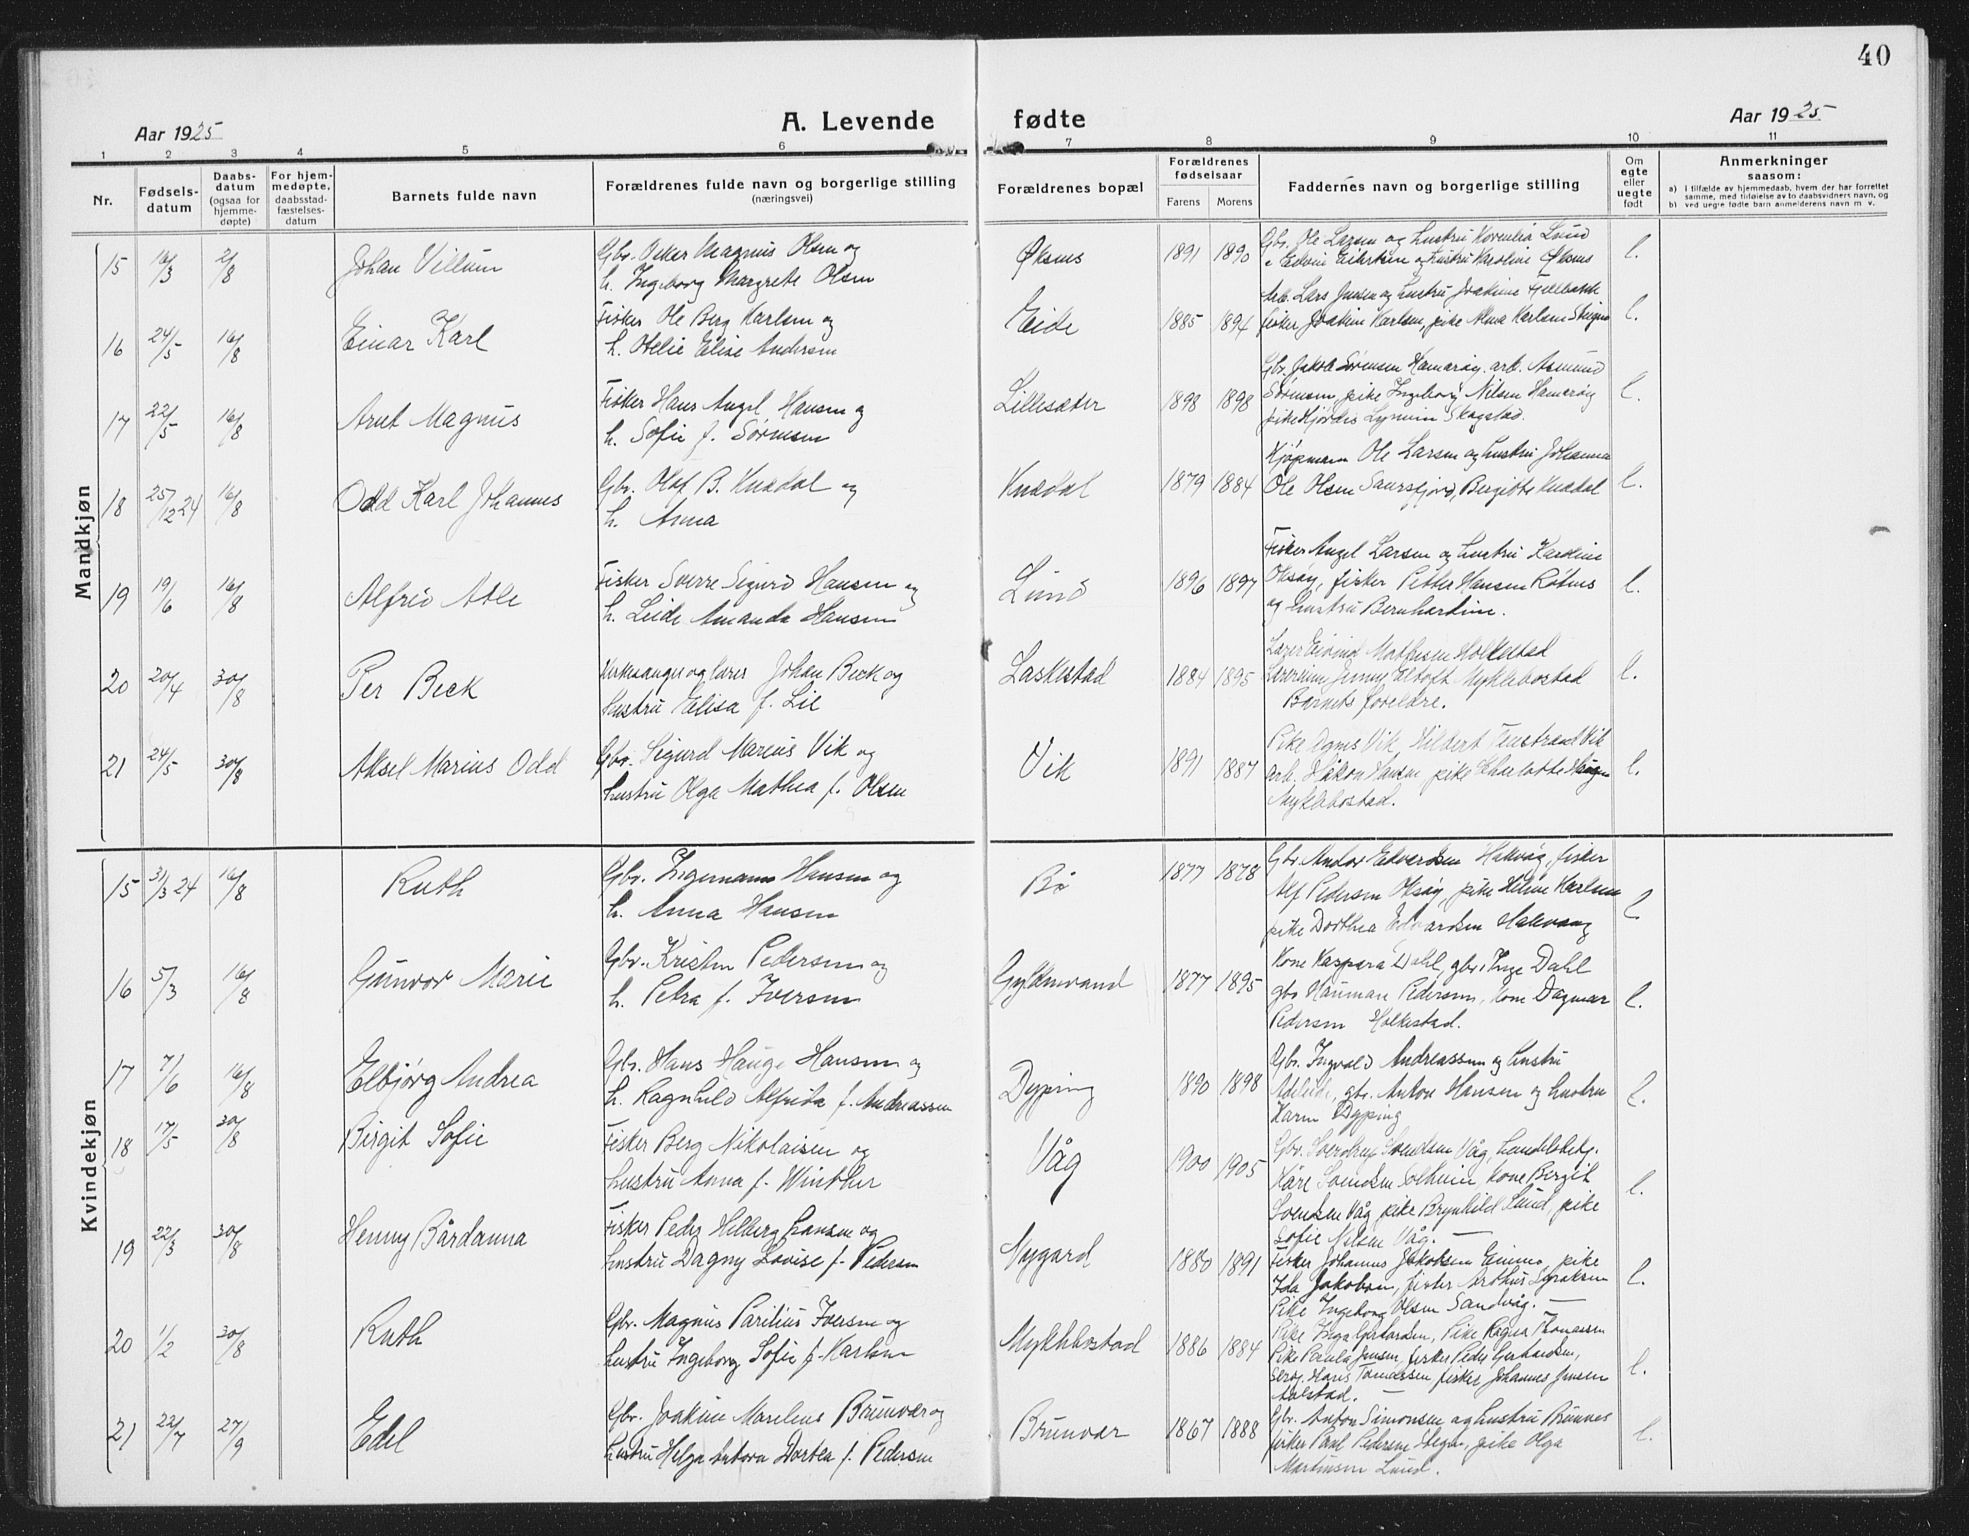 40
Aar 1925
A. Levende fødte
Aar 1925
1 2 3 4 5 6 7 8 9 10 11
Nr.
Fødsels-
datum
Daabs-
datum
(ogsaa for
hjemme-
døpte)
For hjem-
medøpte,
daabsstad-
fæstelses-
datum
Barnets fulde navn
Forældrenes fulde navn og borgerlige stilling
(næringsvei)
Forældrenes bopæl
Forældrenes
fødselsaar
Farens Morens
Faddernes navn og borgerlige stilling
Om
egte
eller
uegte
født
Anmerkninger
saasom:
a) i tilfælde av hjemmedaab, hvem der har forrettet
samme, med tilføielse av to daabsvidners navn, og
b) ved uegte fødte barn anmelderens navn m. v.
Mandkjøn
15 16/3 2/8 Johan Villum
Gbr. Osker Magnus Olsen og
h. Ingeborg Margrete Olsen
Øksnes 1891 1890
Gbr. Ole Larsen og hustru Kornelia Lund
Edvin Eilertsen og hustru Karoline Øksnes
l.
16 24/5 16/8 Einar Karl
Fisker Ole Berg Karlsen og
h. Otelie Elise Andersen
Eide 1885 1894
Arb. Lars Jensen og hustru Joakine
fisker Joakim Karlsen, pike Alma Karlsen
l.
17 22/5 16/8 Arnt Magnus
Fisker Hans Angel Hansen og
h. Sofie f. Sørensen
Lillesæter 1898 1898
Gbr. Jakob Sørensen Hamarøy. arb. Asmund
Sørensen, pike Ingeborg Nilsen Hamarøy
pike Hjørdis Skogstad.
l.
18 25/12 24 16/8 Odd Karl Johannes
Gbr. Olaf B. Knædal og
h. Anna
Knædal 1879 1884
Kjøpmann Ole Larsen og hustru Johanna
Ole Olsen Saursfjord, Bergitte Knædal
l.
19 19/6 16/8 Alfred Atle
Fisker Sverre Sigurd Hansen og
h. Leide Amanda Hansen
Lund 1896 1897
Fisker Angel Larsen og hustru Karoline
Oksøy, fisker Petter Hansen Røtnes
og hustru Bernhardine.
l.
20 20/4 30/8 Per Beck
Kirkesanger og lærer Johan Beck og
hustru Elisa f. Lie
Laskestad 1884 1895
Lærer Eivind Mathisen Holkestad
Lærerinne Jenny Eltoft Myklebostad
Barnets foreldre.
l.
21 24/5 30/8 Aksel Marius Odd
Gbr. Sigurd Marius Vik og
hustru Olga Mathea f. Olsen
Vik 1891 1887
Pike Agnes Vik, Hilbert Tenstrand Vik
arb. Håkon Hansen pike Charlotte Haugen
Myklebostad.
l.
Kvindekjøn
15 31/3 24 16/8 Ruth
Gbr. Ingemann Hansen og
h. Anna Hansen
Bø 1877 1878
Gbr. Andor Edvardsen Hakvåg, fisker
Alf Pedersen Oksøy, pike Heline Karlsen
pike Dorthea Edvardsen Hakvaag
l.
16 5/3 16/8 Gunvor Marie
Gbr. Kristen Pedersen og
h. Petra f. Iversen
Gyltenvand 1877 1895
Kone Kaspara Dahl, gbr. Inge Dahl
gbr Hauman Pedersen, kone Dagmar
Pedersen Holkestad.
l.
17 7/6 16/8 Elbjørg Andrea
Gbr. Hans Hauge Hansen og
h. Ragnhild Alfrida f. Andreassen
Dyping 1890 1898
Gbr. Ingvald Andreassen og hustru
Adelide, gbr. Anton Hansen og hustru
Karen Dyping
l.
18 17/5 30/8 Birgit Sofie
Fisker Berg Nikolaisen og
hustru Anna f. Winther
Våg 1900 1905
Gbr. Sverdrup Svendsen Våg, handelsbetj.
Kåre Svendsen Solheim, kone Bergit
Svendsen Våg pike Brynhild Lund, pike
Sofie Nilsen Våg.
l.
19 22/3 30/8 Henny Bårdanna
Fisker Peder Hilberg Hansen og
hustru Dagny Lovise f. Pedersen
Nygard 1880 1891
Fisker Johannes Jakobsen, pike
Ida Jakobsen, fisker Arthur
Pike Ingeborg Olsen Sandvåg.
l.
20 1/2 30/8 Ruth
Gbr. Magnus Parilius Iversen og
hustru Ingeborg Sofie f. Karlsen
Myklebostad 1886 1884
Pike Inga Gerhardsen, Pike Ragna Thomassen
Pike Paula Jensen, fisker Peder Gerhardsen,
Hans Tomassen fisker Johannes Jensen
Aalstad.
l.
21 22/7 27/9 Edel
Gbr. Joakim Marelius Brunvær og
hustru Helga Antora Dortea f. Pedersen
Brunvær 1867 1888
Gbr. Anton Simonsen og hustru
fisker Paul Pedersen pike Olga
Martinsen Lund.
l.